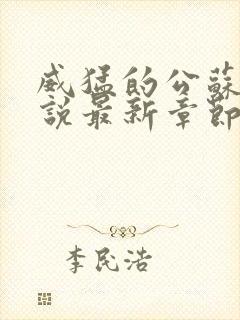 威猛的公蘇
說最新章節
李民浩